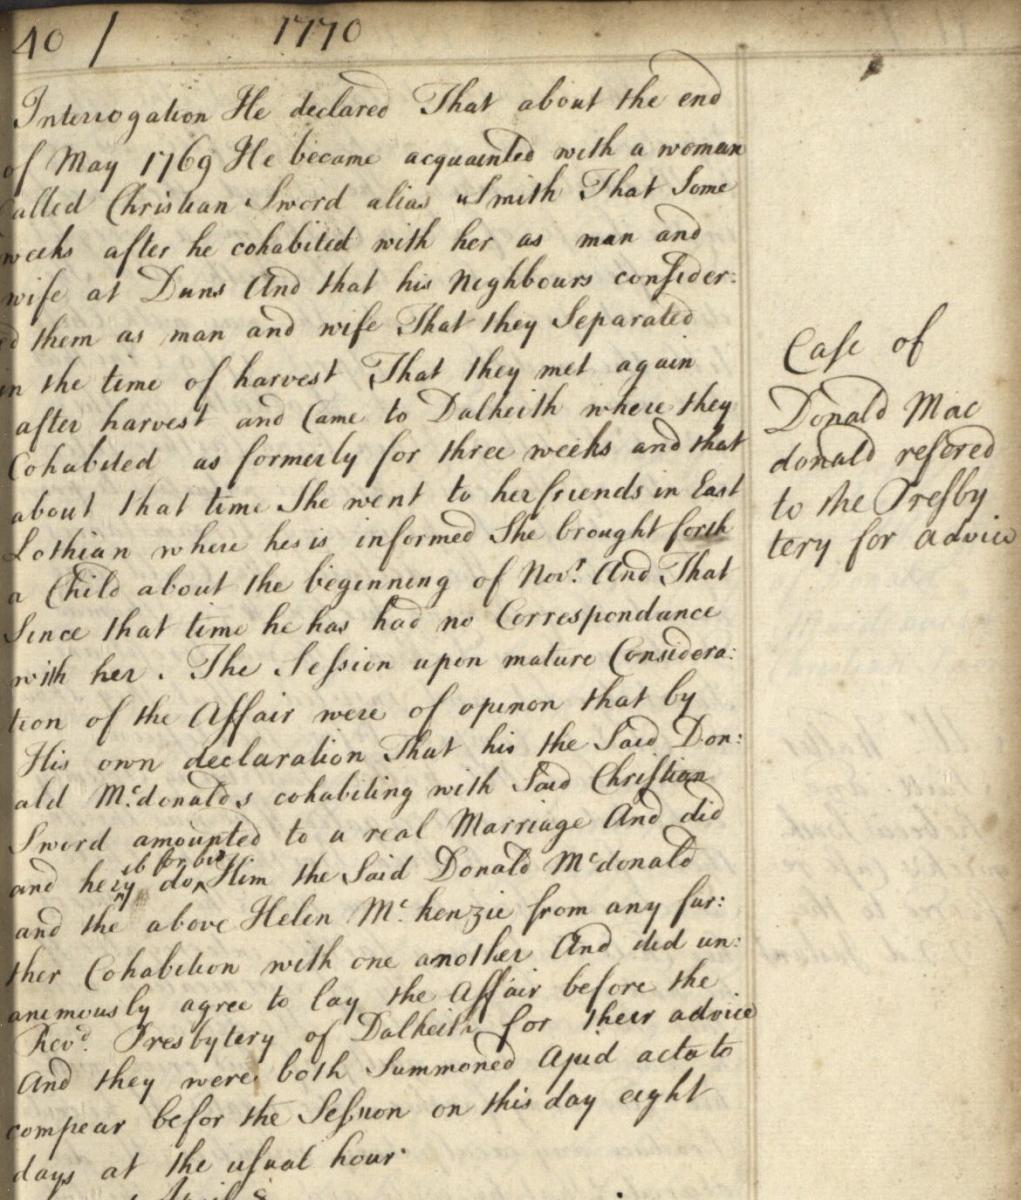 40 / 1770
Interrogation He declared That about the end
of May 1769 He became acquainted with a woman
Called Christian Sword alias Smith That Some
weeks after he cohabited with her as man and
wife at Duns And that his Neighbours consider:
ed them as man and wife That they Separated
in the time of harvest That they met again
after harvest and Came to Dalkeith where they
Cohabited as formerly for three weeks and that
about that time She went to her friends in East
Lothian where he is informed She brought forth
a Child about the beginning of Novr. And That
Since that time he has had no Correspondance
with her. The Session upon mature Considera:
tion of the Affair were of openon that by
His own declaration That his the Said Don:
ald Mcdonalds cohabiting with Said Christian
Sword amounted to a real Marriage And did
and hery do Him the Said Donald Mcdonald
and the above Helen Mc.kenzie from any fur:
ther Cohabition with one another And did un:
animously agree to lay the Affair before the
Revd. Presbytery of Dalkeith for their advice
And they were both Summoned Apud acta to
compear befor the Session on this day eight
days at the usual hour
Case of
Donald Mac
donald refered
to the Presby
tery for advice